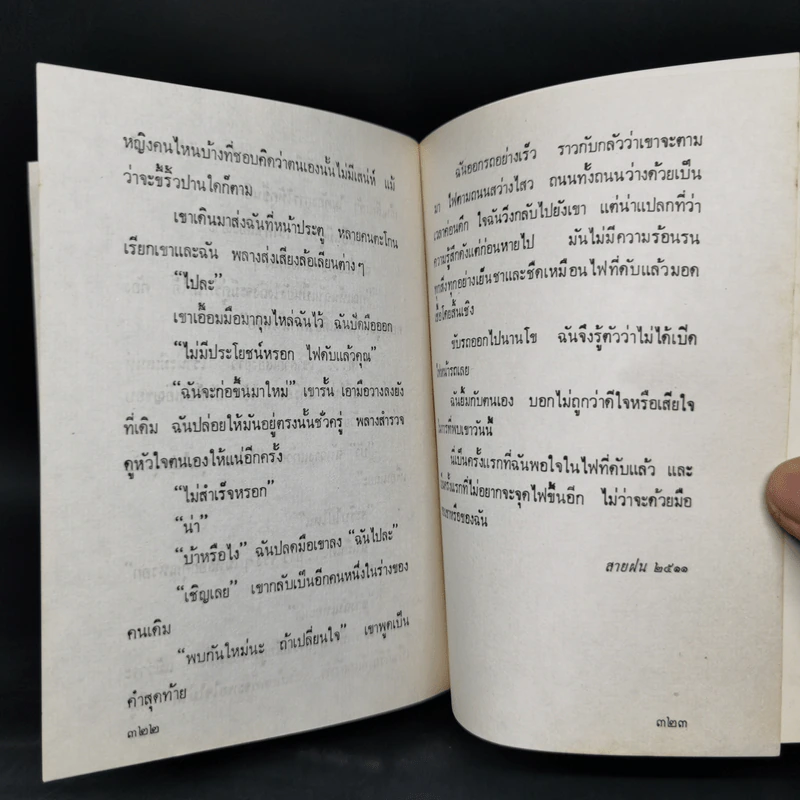 หญิงคนไหนบ้างที่ชอบคิดว่าตนเองนั้นไม่มีเสน่ห์ แม้
ว่าจะขี้ริ้วปานใดก็ตาม
เขาเดินมาส่งฉันที่หน้าประตู หลายคนตะโกน
เรียกเขาและฉัน พลางส่งเสียงล้อเลียนต่างๆ
“ไปละ”
เขาเอื้อมมือมากุมไหล่ฉันไว้ ฉันปัดมือออก
“ไม่มีประโยชน์หรอก ไฟดับแล้วคุณ”
“ฉันจะก่อขึ้นมาใหม่” เขารั้น เอามือวางลงยัง
ที่เดิม ฉันปล่อยให้มันอยู่ตรงนั้นชั่วครู่ พลางสำรวจ
ดูหัวใจตนเองให้แน่อีกครั้ง
“ไม่สำเร็จหรอก”
“น่า”
“บ้าหรือไง” ฉันปลดมือเขาลง “ฉันไปละ”
“เชิญเลย” เขากลับเป็นอีกคนหนึ่งในร่างของ
คนเดิม
“พบกันใหม่นะ ถ้าเปลี่ยนใจ” เขาพูดเป็น
คำสุดท้าย
๓๒๒
ฉันออกรถอย่างเร็ว ราวกับกลัวว่าเขาจะตาม
มา ไฟตามถนนสว่างไสว ถนนทั้งถนนว่างด้วยเป็น
เวลาค่อนดึก ใจฉันวิ่งกลับไปยังเขา แต่น่าแปลกที่ว่า
ความรู้สึกดังแต่ก่อนหายไป มันไม่มีความร้อนรน
ทุกสิ่งทุกอย่างเย็นชาและชืดเหมือนไฟที่ดับแล้วมอด
เชื้อโดยสิ้นเชิง
ขับรถออกไปนานโข ฉันจึงรู้ตัวว่าไม่ได้เปิด
ไฟหน้ารถเลย
ฉันยิ้มกับตนเอง บอกไม่ถูกว่าดีใจหรือเสียใจ
ในการที่พบเขาวันนี้
นี่เป็นครั้งแรกที่ฉันพอใจในไฟที่ดับแล้ว และ
ครั้งแรกที่ไม่อยากจะจุดไฟขึ้นอีก ไม่ว่าจะด้วยมือ
ของเขาหรือของฉัน
สายฝน ๒๕๑๑
๓๒๓